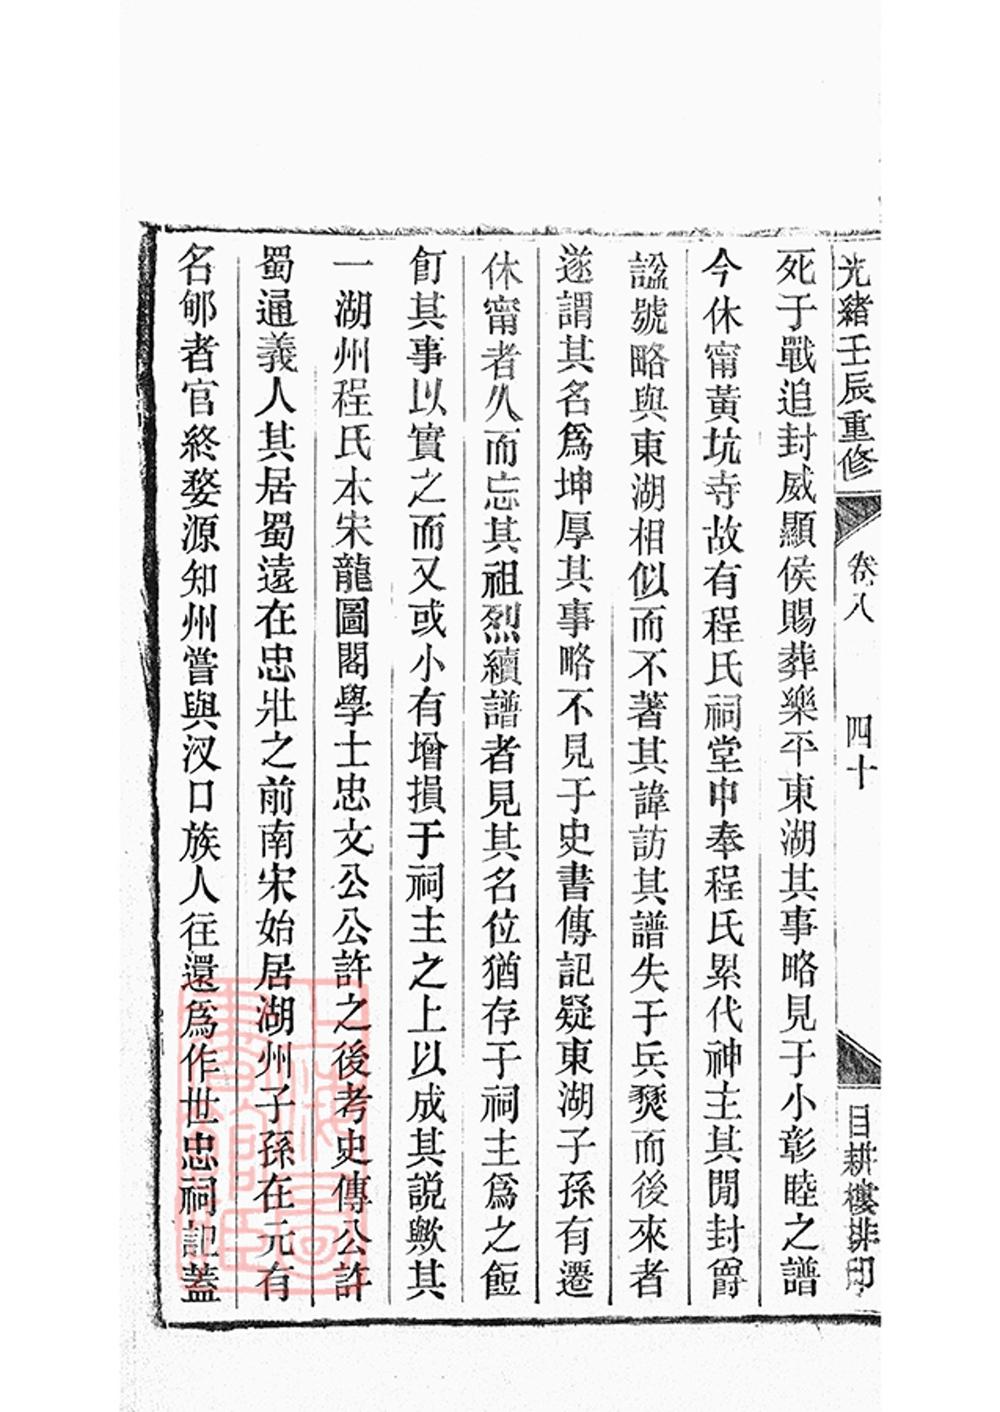 光緒壬辰重修 卷八 四十 目耕樓排印
死于戰追封威顯侯賜葬樂平東湖其事略見于小彰睦之譜
今休甯黃坑寺故有程氏祠堂中奉程氏累代神主其閒封爵
諡號略與東湖相似而不著其諱訪其譜失于兵燹而後來者
遂謂其名爲坤厚其事略不見于史書傳記疑東湖子孫有遷
休甯者久而忘其祖烈續譜者見其名位猶存于祠主爲之飣
飣其事以實之而又或小有增損于祠主之上以成其説歟其
一湖州程氏本宋龍圖閣學士忠文公公許之後考史傳公許
蜀通義人其居蜀遠在忠壯之前南宋始居湖州子孫在元有
名郇者官終婺源知州嘗與汊口族人往還爲作世忠祠記蓋
上海圖書館藏